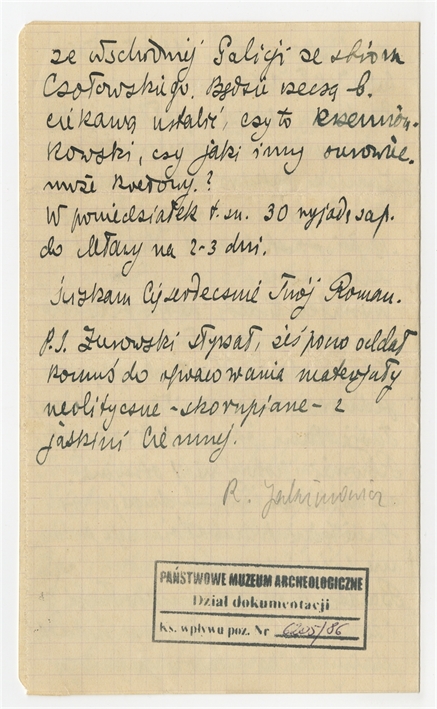 ze wschodniej Galicji ze zbioru
Czołowskiego. Będzie rzeczą b.
ciekawą ustalić, czy to krzemion-
kowski, czy jaki inny surowiec.
może kredowy?
W poniedziałek t. zn. 30 wyjadę
do Mławy na 2-3 dni.
Ściskam Cię serdecznie Twój Roman.
P.S. Żurowski słyszał, żeś pono oddał
komuś do opracowania materjały
neolityczne - skorupiane - z
jaskini Ciemnej.
R. Jakimowicz
PAŃSTWOWE MUZEUM ARCHEOLOGICZNE
Dział dokumentacji
Ks. wpływu poz. Nr /86